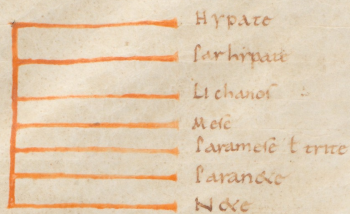 Hypate
Parhypate
Lichanos
Mese
Paramese ł trite
Paranete
Nete